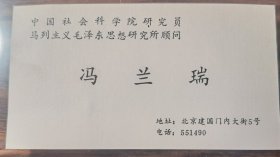 中国社会科学院研究员
马列主义毛泽东思想研究所顾问
冯兰瑞
地址：北京建国门内大街5号
电话：551490